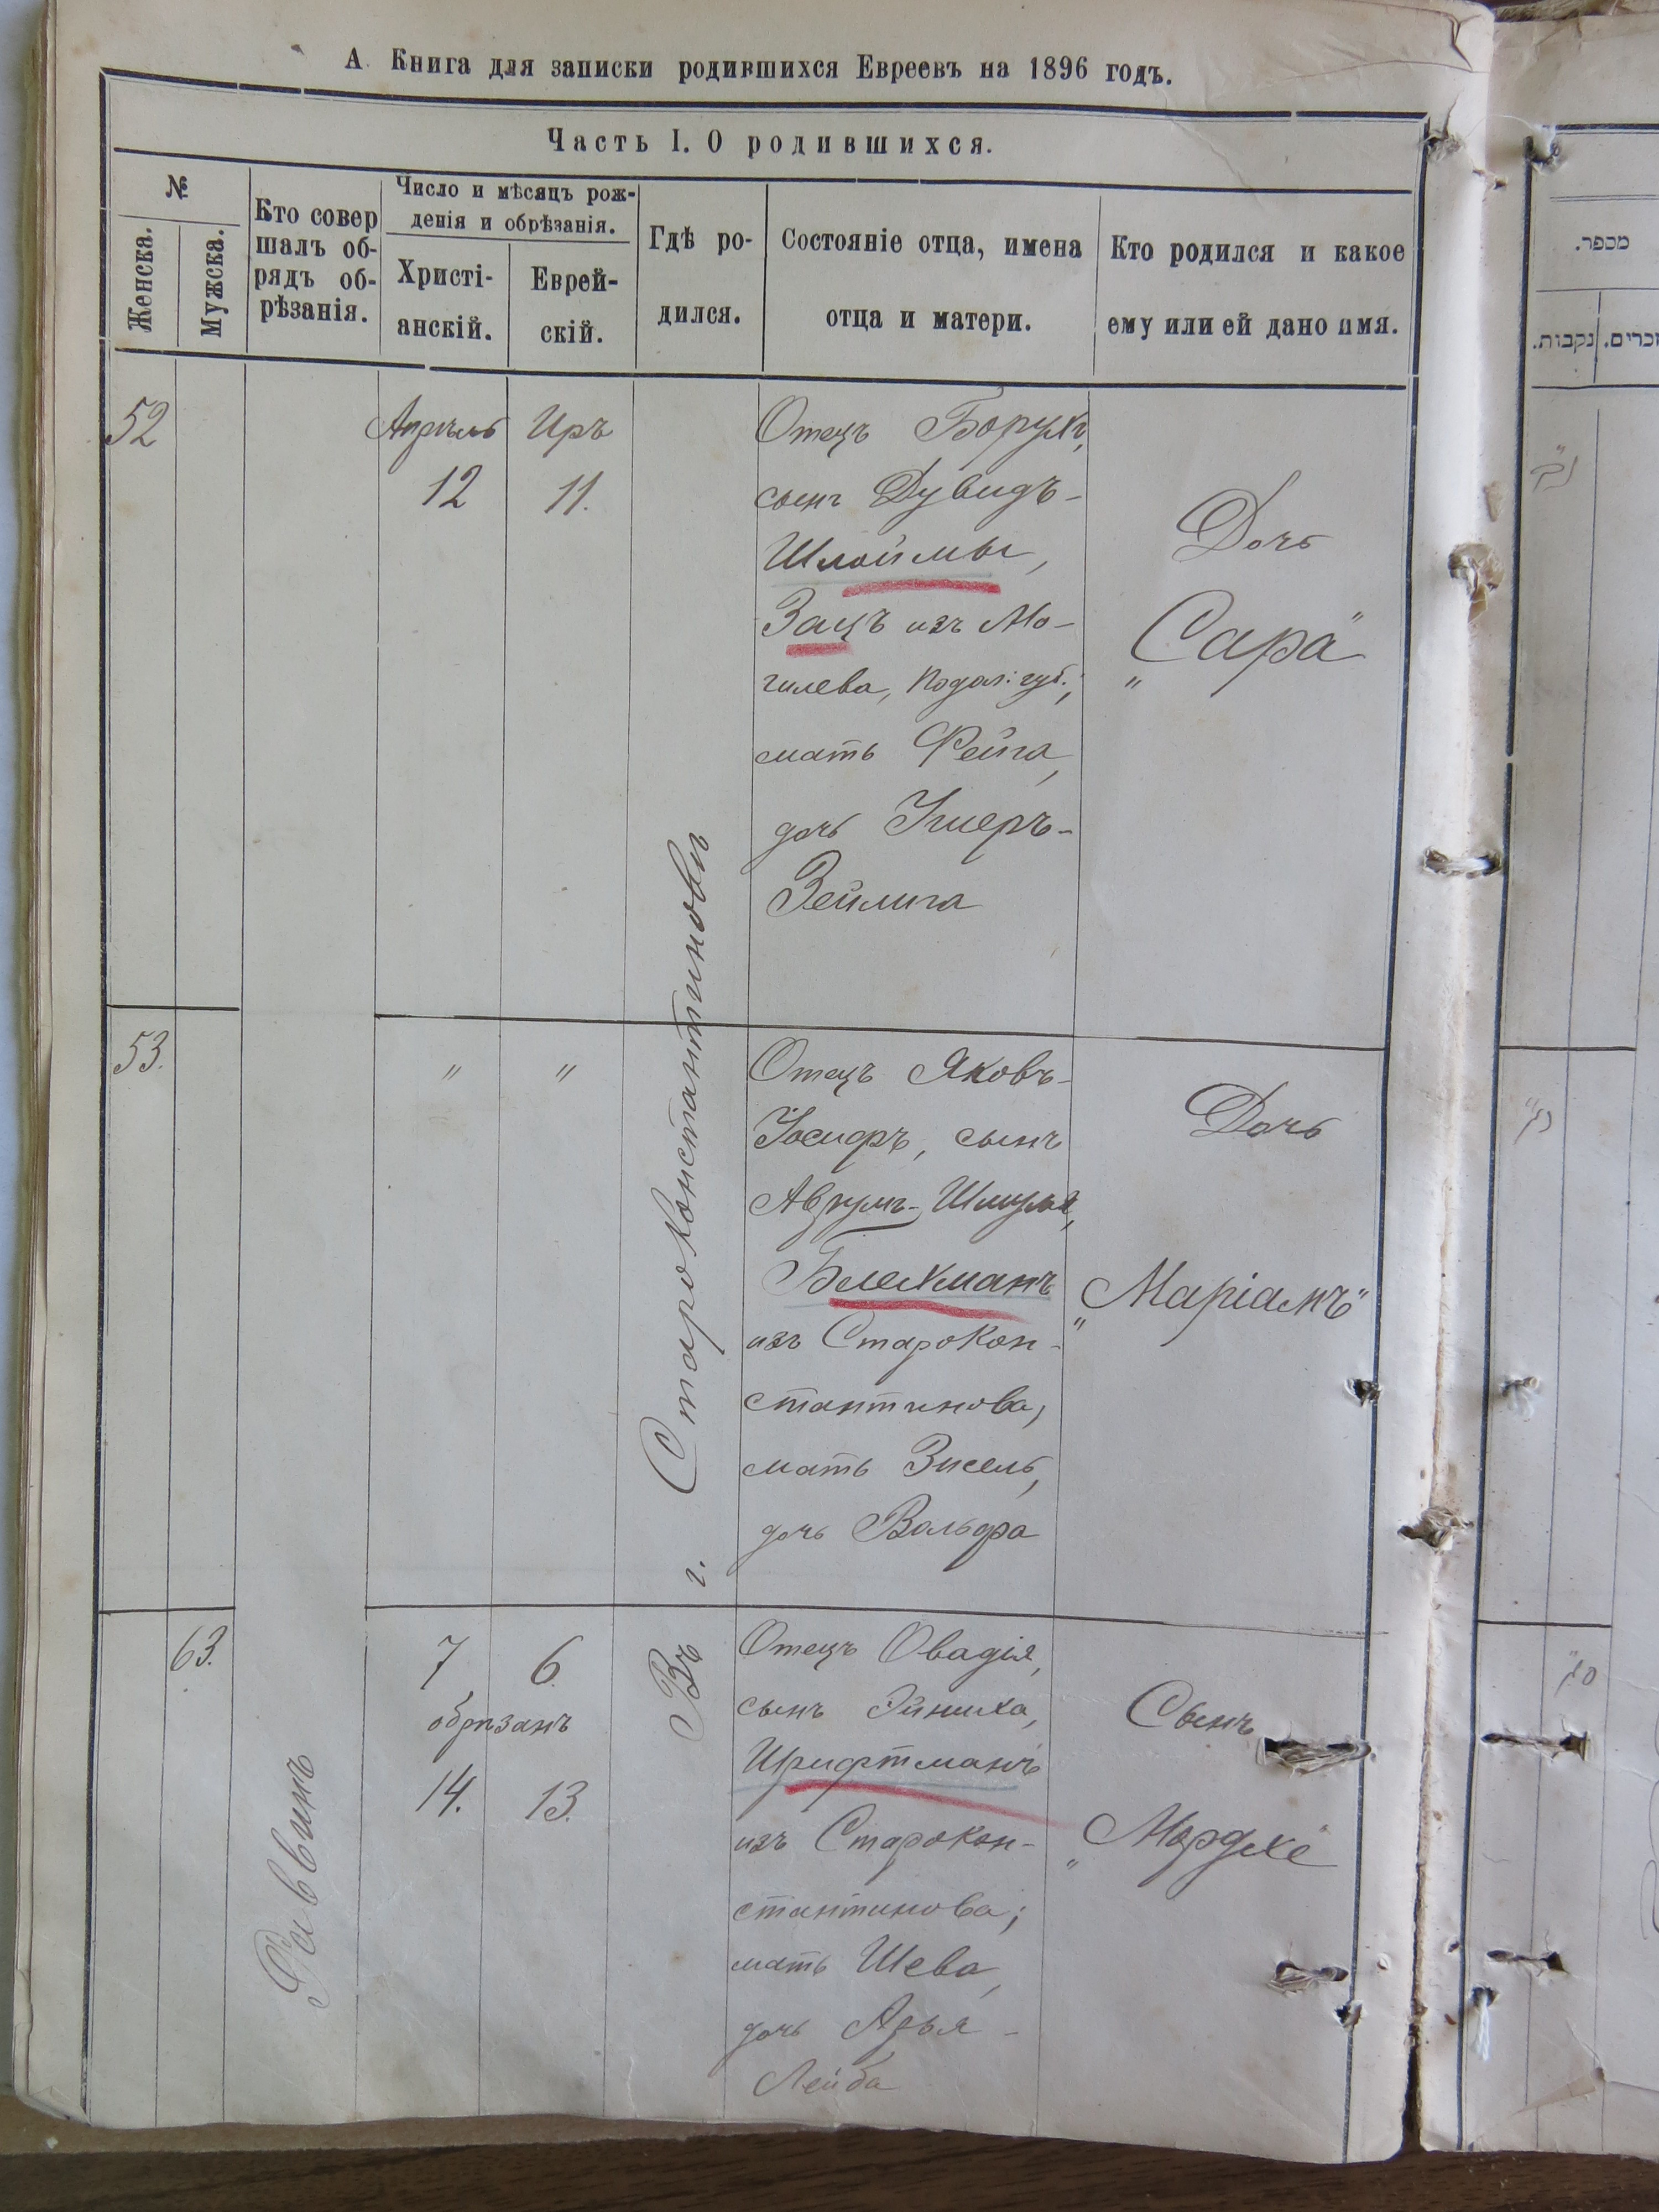 А. Книга для записки родившихся Евреевъ на 1896 годъ.
Часть I. О родившихся.
№
Женска.
Мужска.
Кто совер
шалъ об-
рядъ об-
рѣзанія.
Число и мѣсяцъ рож-
денія и обрѣзанія.
Христі-
анскій.
Еврей-
скій.
Гдѣ ро-
дился.
Состояніе отца, имена
отца и матери.
Кто родился и какое
ему или ей дано имя.
Раввинъ
Въ г. Староконстантиновѣ
52
Апрѣль
12
Иръ
11.
Отецъ Борухъ,
сынъ Дувидъ-
Шлоймы,
Зацъ изъ Мо-
гилева, Подол: губ.;
мать Фейга,
дочь Ушеръ-
Зейлига
Дочь
„Сара“
53.
"
"
Отецъ Яковъ-
Іосифъ, сынъ
Аврумъ-Шмуля,
Блехманъ
изъ Старокон-
стантинова,
мать Зисель,
дочь Вольфа
Дочь
„Маріамъ“
63.
7
6
обрѣзанъ
14.
13.
Отецъ Овадія,
сынъ Эйниха,
Шрифтманъ
изъ Старокон-
стантинова;
мать Шева,
дочь Арья-
Лейба
Сынъ
„Мордхе“
מספר.
נקבות.
זכרים.
נב
נג
סג